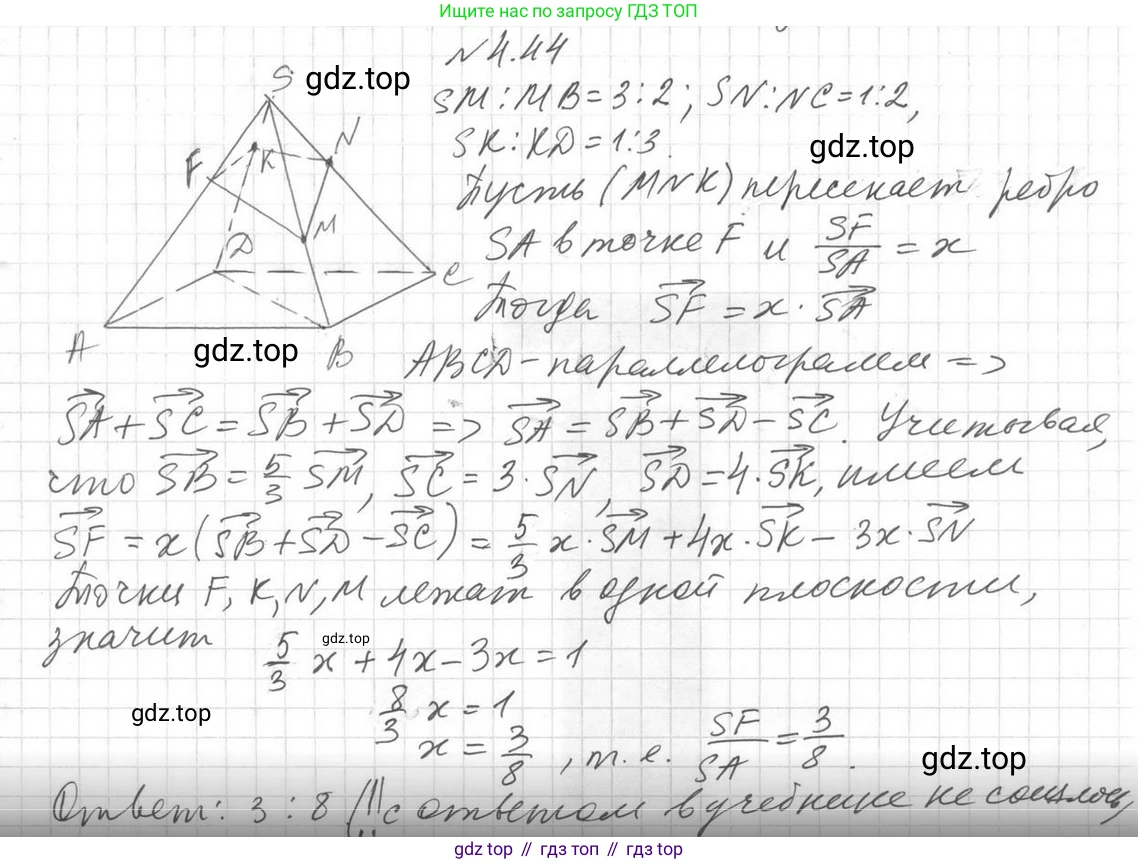 Ищите нас по запросу ГДЗ ТОП
N 4.44
S gdz.top
SM : MB = 3 : 2 ; SN : NC = 1:2,
SK : KD = 1:3.
gdz.top
F K N
Пусть (MNK) пересекает ребро
D M
SA в точке F и SF/SA = x
C
Тогда SF = x · SA
A gdz.top B
ABCD - параллелограмм =>
SA + SC = SB + SD => SA = SB + SD - SC. Учитывая,
что SB = 5/3 SM, SC = 3 · SN, SD = 4 · SK, имеем
SF = x (SB + SD - SC) = 5/3 x · SM + 4x · SK - 3x · SN
Точки F, K, N, M лежат в одной плоскости,
значит
gdz.top
5/3 x + 4x - 3x = 1
8/3 x = 1
gdz.top
x = 3/8 , т. е. SF/SA = 3/8 .
gdz.top
Ответ: 3 : 8 (!! с ответом в учебнике не сошлось,
gdz top // гдз топ // gdz top